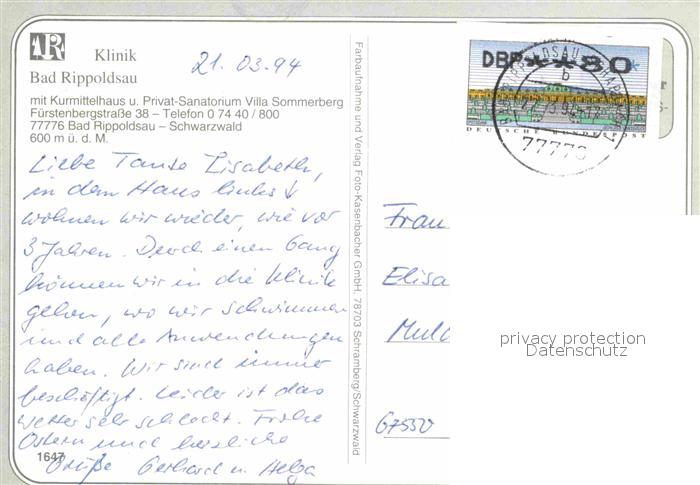 AR
Klinik
Bad Rippoldsau
21.03.94
mit Kurmittelhaus u. Privat-Sanatorium Villa Sommerberg
Fürstenbergstraße 38 – Telefon 0 74 40 / 800
77776 Bad Rippoldsau – Schwarzwald
600 m ü. d. M.
Liebe Tante Elisabeth,
in dem Haus links ↓
wohnen wir wieder, wie vor
3 Jahren. Durch einen Gang
können wir in die Klinik
gehen, wo wir schwimmen
und alle Anwendungen
haben. Wir sind immer
beschäftigt. Leider ist das
Wetter sehr schlecht. Frohe
Ostern und herzliche
Grüße Gerhard u. Helga
1647
Farbaufnahme und Verlag Foto-Kasenbacher GmbH, 78703 Schramberg/Schwarzwald
DBP**80*
DEUTSCHE BUNDESPOST
BAD RIPPOLDSAU-SCHAPBACH
b
77776
Frau
Elisa
67550
privacy protection
Datenschutz